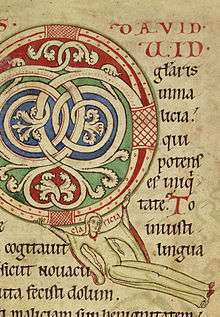 S. DAVID
UID
glaris
inma
licia.
qui
potens
es iniq
tate. To
cla ricia
iniusti
cogitauit lingua
sicut nouacu
uta fecisti dolum.
super benignitatem